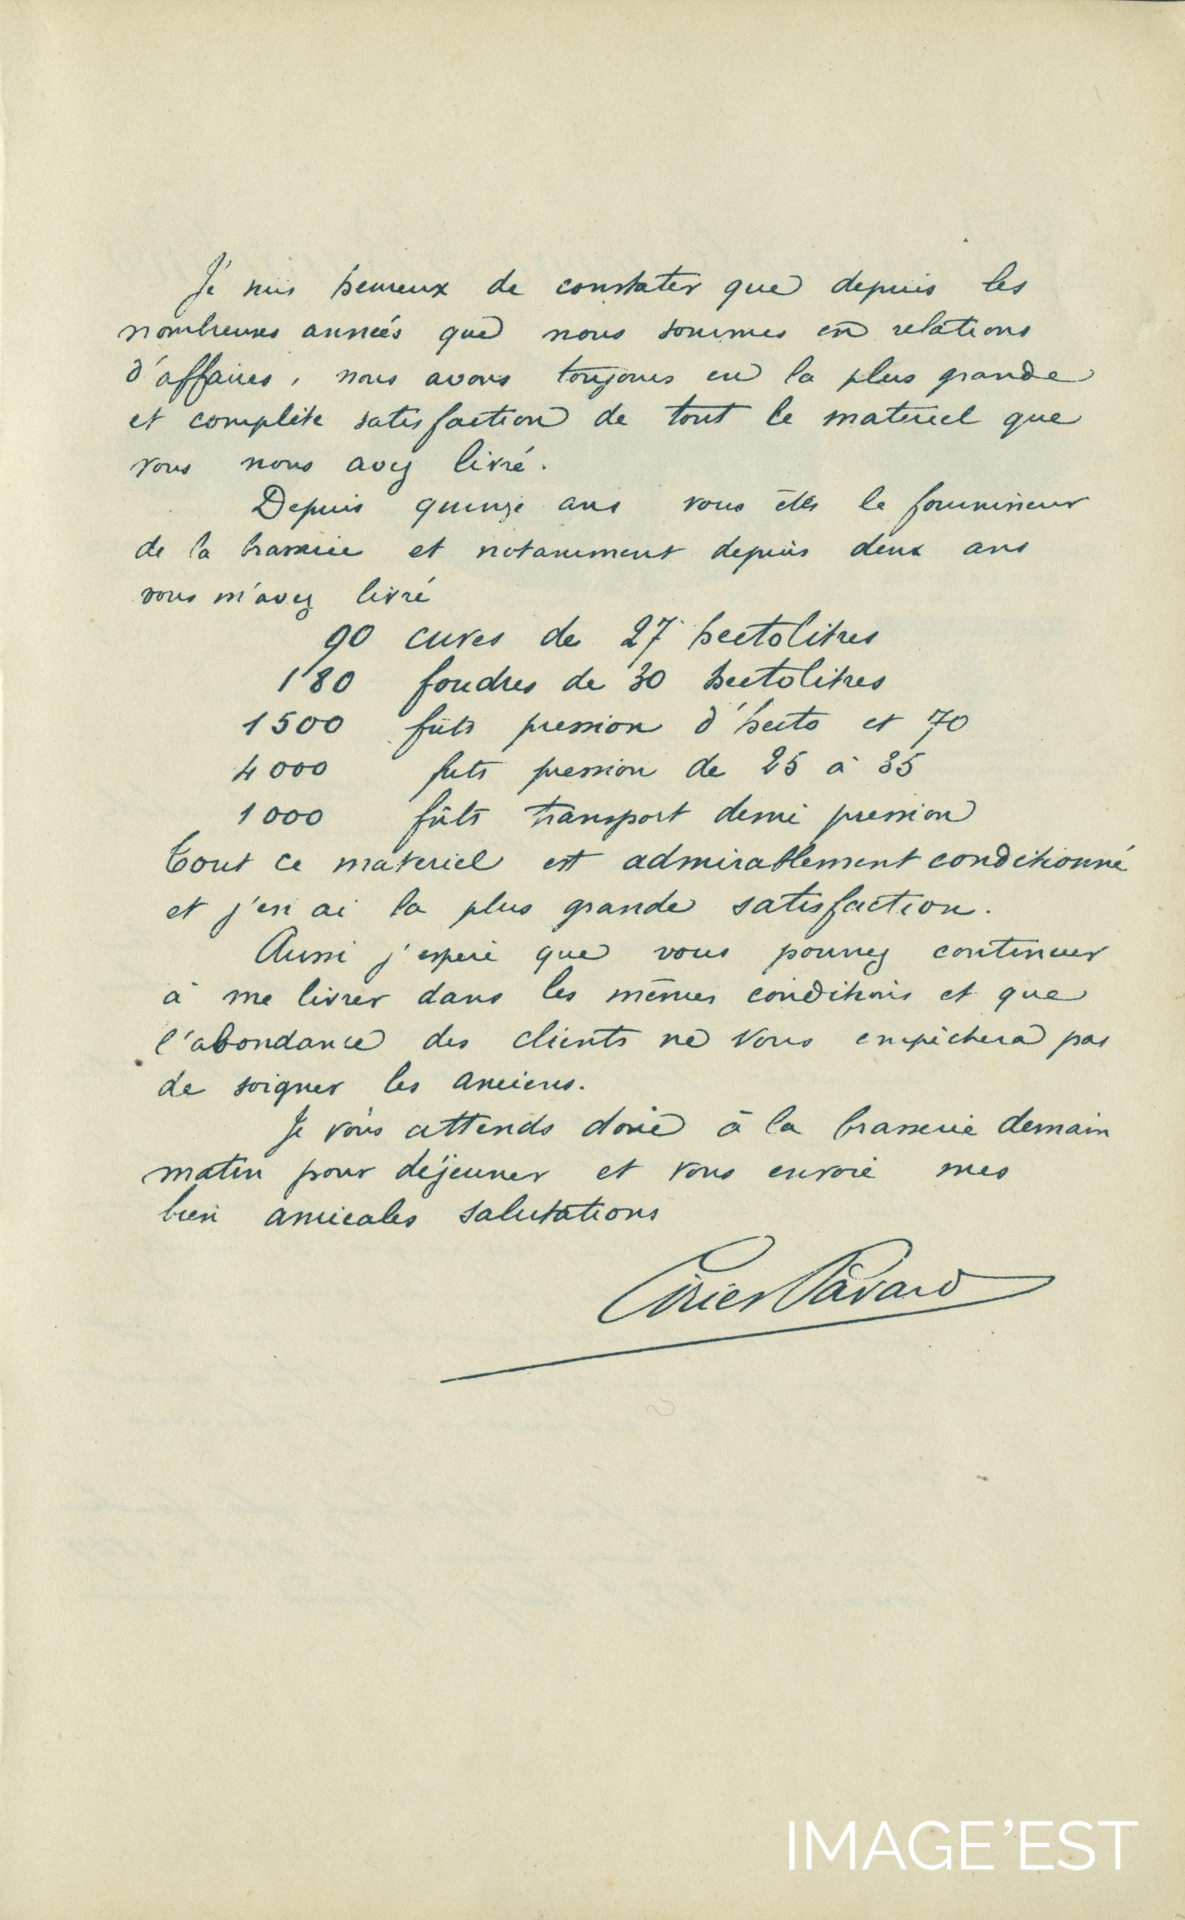 Je suis heureux de constater que depuis les
nombreuses années que nous sommes en relations
d'affaires, nous avons toujours eu la plus grande
et complète satisfaction de tout le materiel que
vous nous avez livré.
Depuis quinze ans vous êtes le fournisseur
de la brasserie et notamment depuis deux ans
vous m'avez livré
90 cuves de 27 hectolitres
180 foudres de 30 hectolitres
1500 fûts pression d'hecto et 70
4000 futs pression de 25 à 35
1000 fûts transport demi pression
Tout ce materiel est admirablement conditionné
et j'en ai la plus grande satisfaction.
Aussi j'espère que vous pourrez continuer
à me livrer dans les mêmes conditions et que
l'abondance des clients ne vous empêchera pas
de soigner les anciens.
Je vous attends donc à la brasserie demain
matin pour déjeuner et vous envoie mes
bien amicales salutations
Cirier Pavard
IMAGE'EST